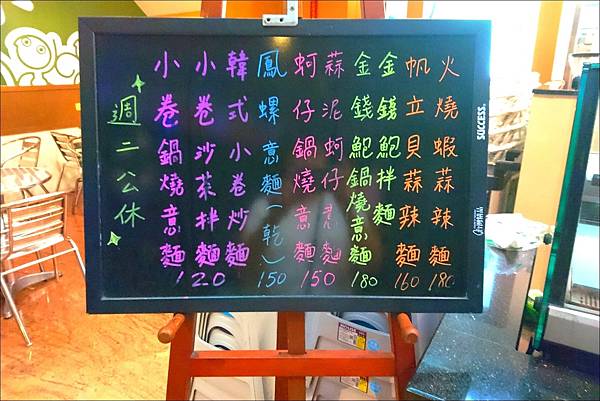 火燒蝦蒜辣麵 180
帆立貝蒜辣麵 160
金錢鮑拌麵
金錢鮑鍋燒意麵 180
蒜泥蚵仔意麵
蚵仔鍋燒意麵 150
鳳螺意麵(乾) 150
韓式小卷炒麵
小卷沙茶拌麵
小卷鍋燒意麵 120
週二公休
SUCCESS